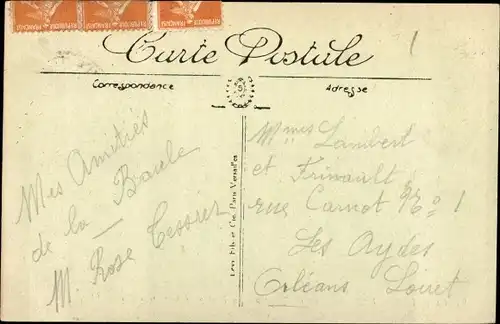 REPUBLIQUE FRANÇAISE REPUBLIQUE FRANÇAISE REPUBLIQUE FRANÇAISE
Carte Postale
Correspondance
Adresse
Mes Amitiés
de la Baule
M. Rose Tessier
Lévy Fils et Cie, Paris-Versailles
Mmes Lambert
et Frinault
rue Carnot No 1
Les Aydes
Orléans Loiret